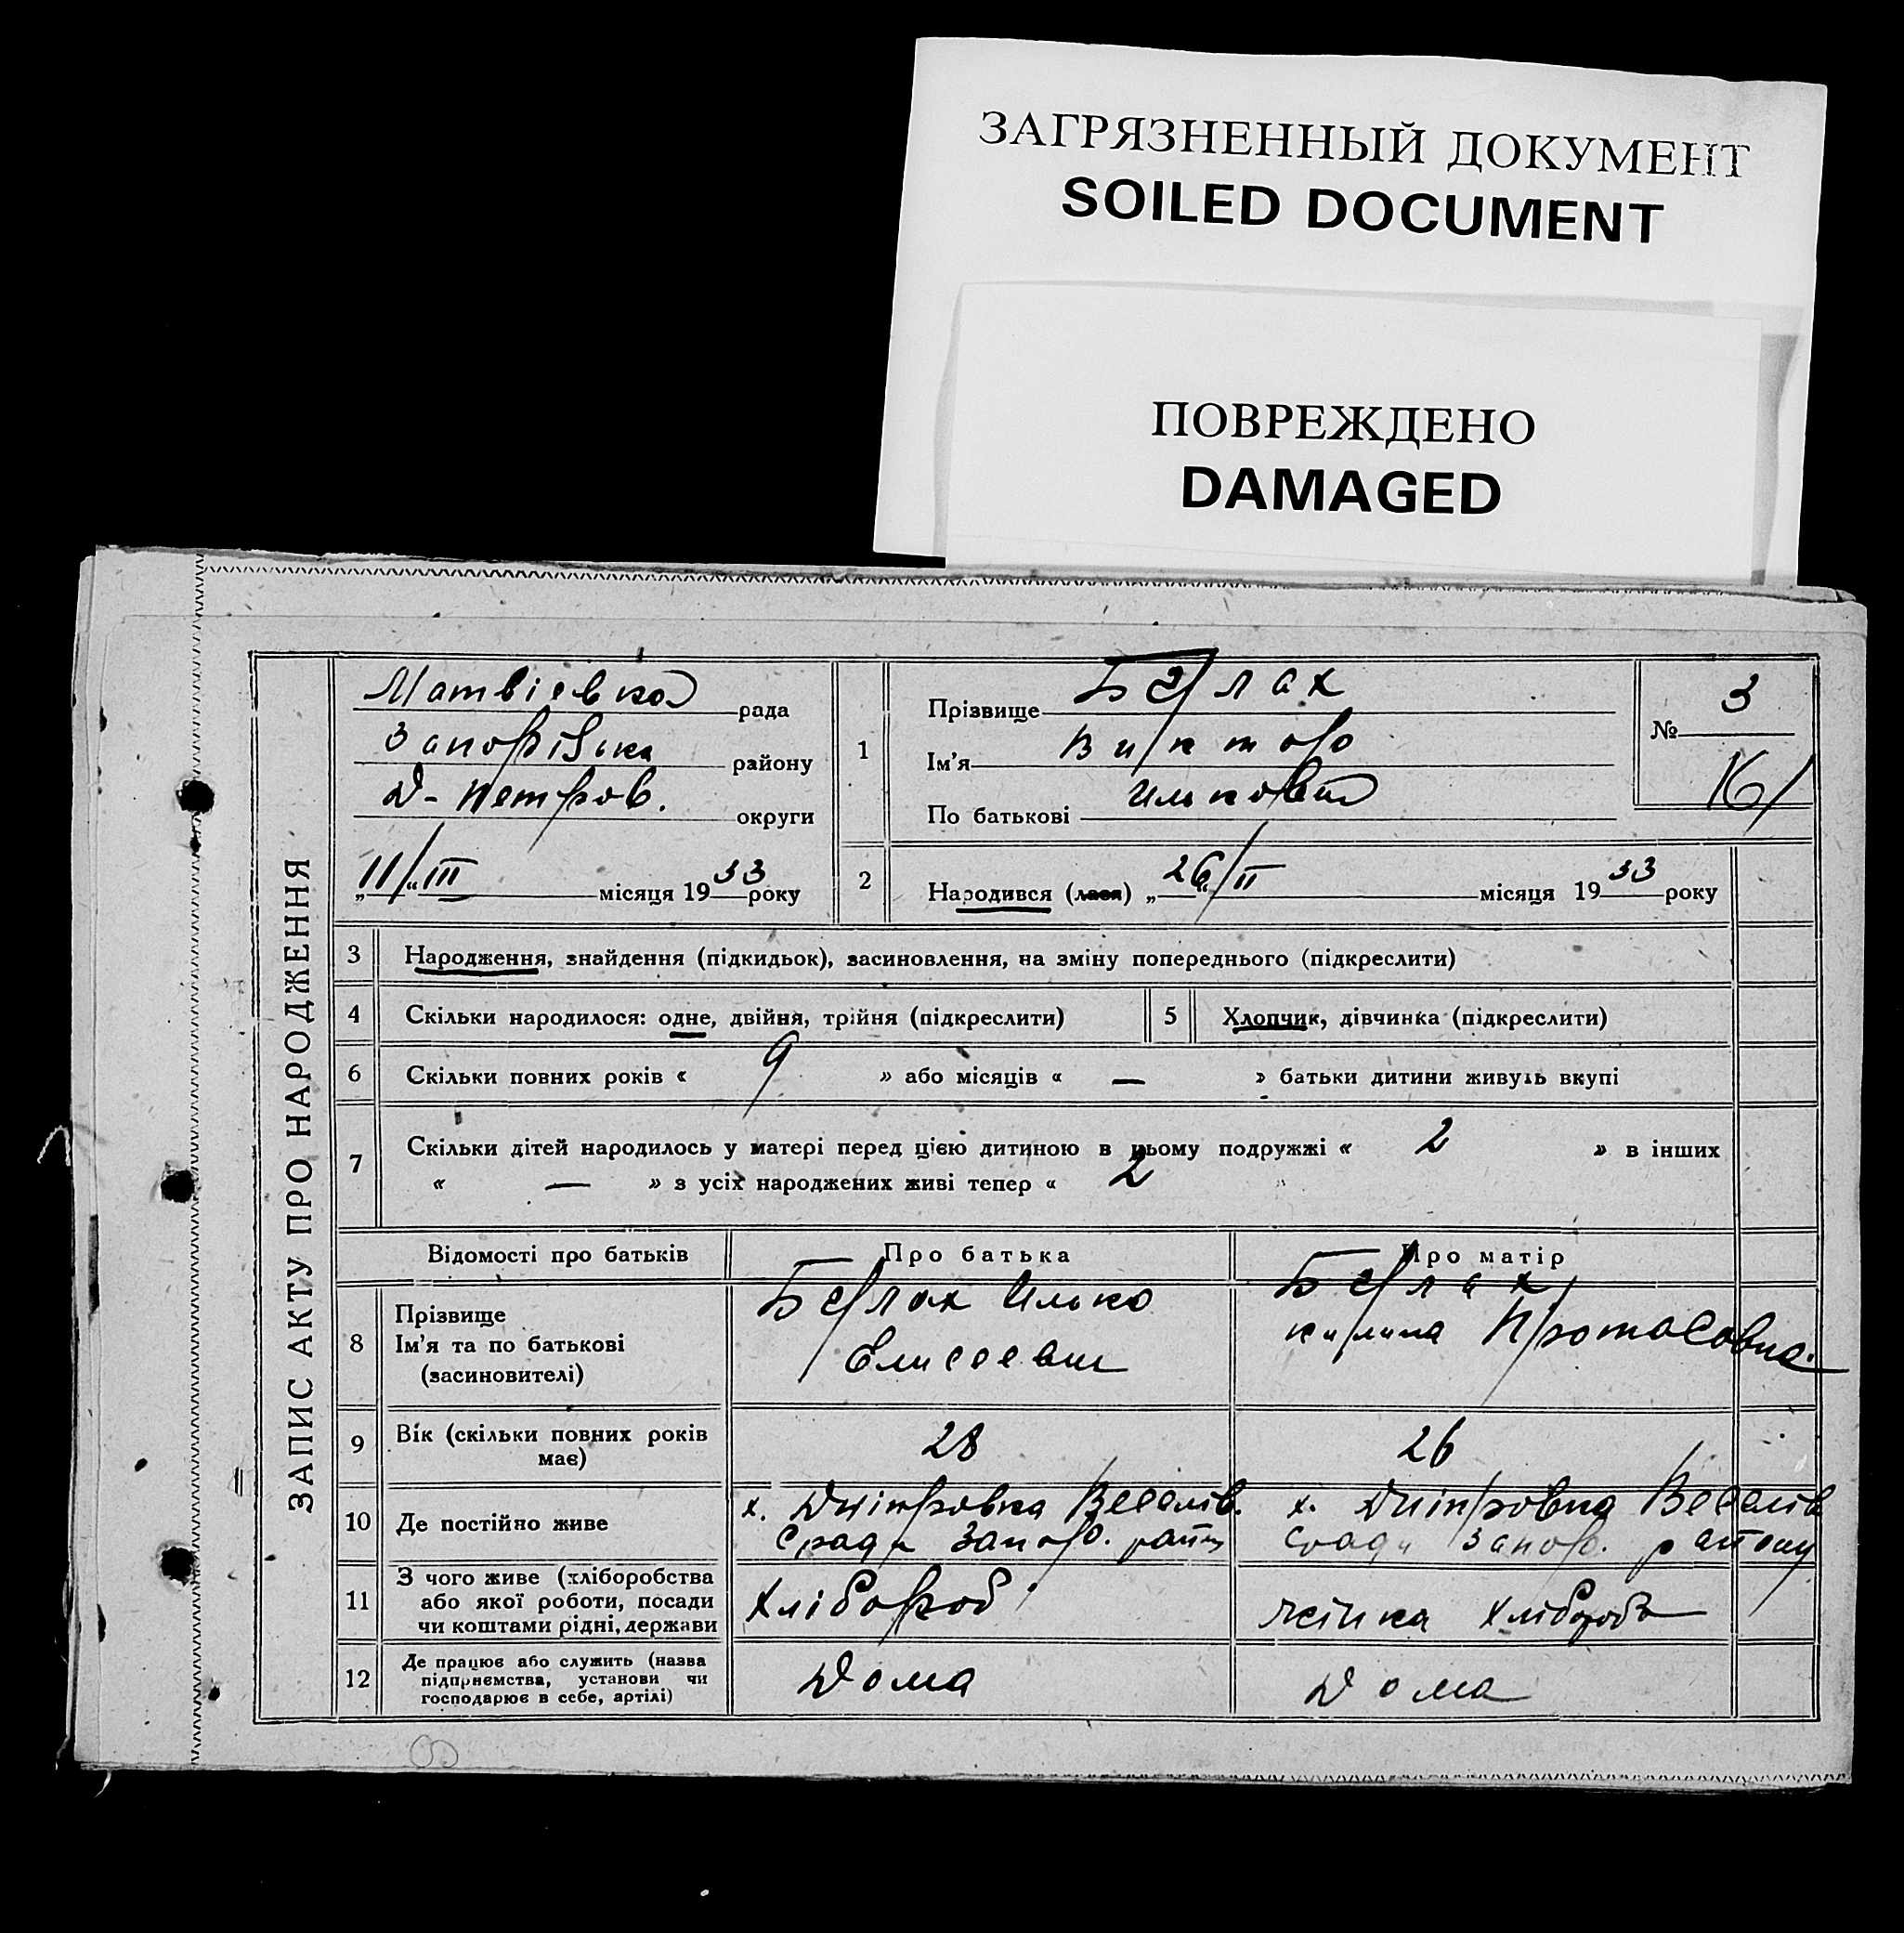 ЗАГРЯЗНЕННЫЙ ДОКУМЕНТ
SOILED DOCUMENT
ПОВРЕЖДЕНО
DAMAGED
ЗАПИС АКТУ ПРО НАРОДЖЕННЯ
Матвієвка рада
району
Д-Петров. округи
„11/„III місяця 1933 року
1
Прізвище
Ім'я Виктор
По батькові
№ 3
16/
2 Народився (лася) „26/„II місяця 1933 року
3 Народження, знайдення (підкидьок), засиновлення, на зміну попереднього (підкреслити)
4 Скільки народилося: одне, двійня, трійня (підкреслити) 5 Хлопчик, дівчинка (підкреслити)
6 Скільки повних років « 9 » або місяців « — » батьки дитини живуть вкупі
7 Скільки дітей народилось у матері перед цією дитиною в цьому подружжі « 2 » в інших
« — » з усіх народжених живі тепер « 2 »
Відомості про батьків Про батька Про матір
8 Прізвище
Ім'я та по батькові
(засновителі)
Илько
Елисеевич
Протасовна
9 Вік (скільки повних років має) 28 26
10 Де постійно живе
х. Дніпровка Веселів.
сради Запор. район
х. Дніпровка Веселів
сради Запор. району
11 З чого живе (хліборобства
або якої роботи, посади
чи коштами рідні, держави
Хлібороб
жінка хлібороба
12 Де працює або служить (назва
підприємства, установи чи
господарює в себе, артілі)
Дома
Дома